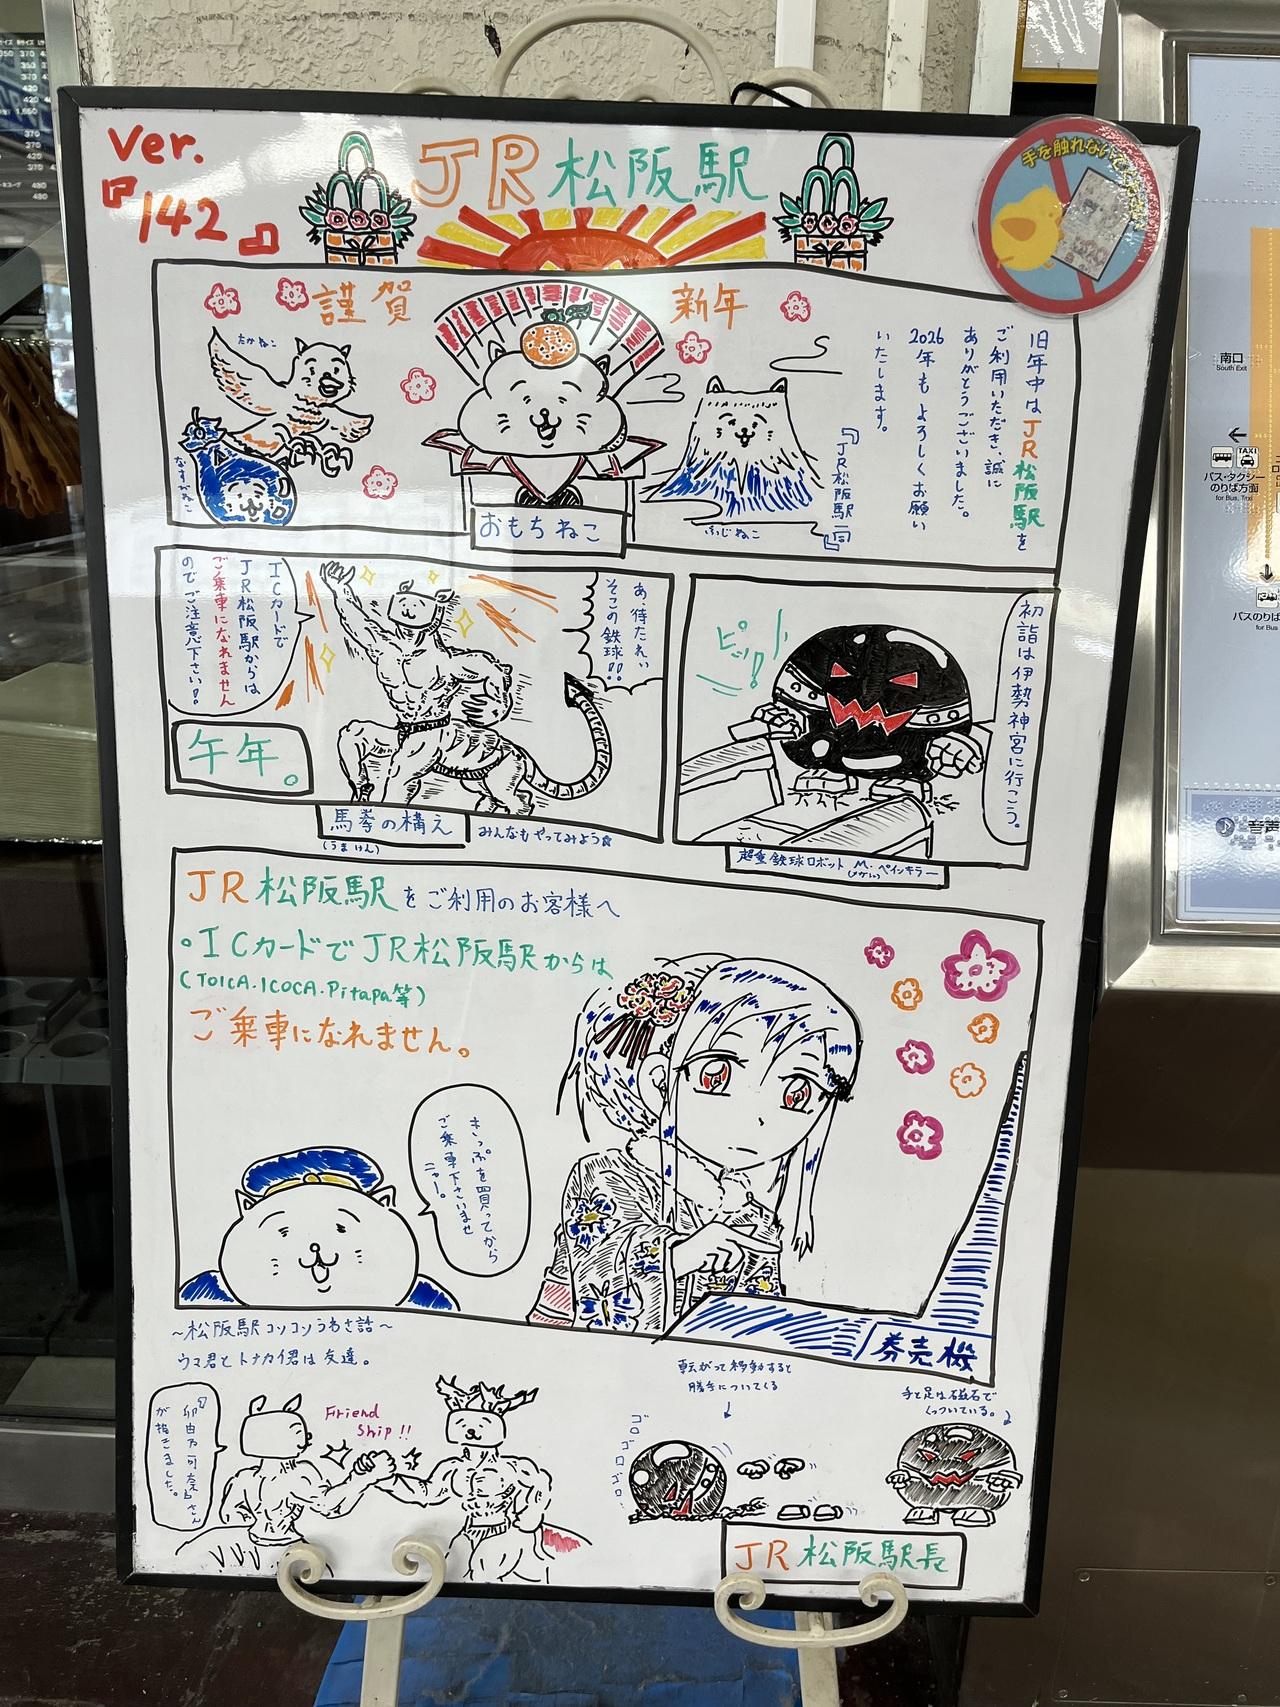 Ver.
『142』
JR松阪駅
手を触れないで
謹賀
新年
たかねこ
なすびねこ
おもちねこ
ふじねこ
旧年中はJR松阪駅を
ご利用いただき、誠に
ありがとうございました。
2026年もよろしくお願い
いたします。
『JR松阪駅一同』
初詣は伊勢神宮に行こう。
ピッ!
超重鉄球ロボット M.ペインキラー
あ、待たれい
そこの鉄球!!
ICカードで
JR松阪駅からは
ご乗車になれません
のでご注意下さい!!
午年。
馬拳の構え
(うまけん)
みんなもやってみよう☆
JR松阪駅をご利用のお客様へ
・ICカードでJR松阪駅からは
(TOICA.ICOCA.Pitapa等)
ご乗車になれません。
きっぷを買ってから
ご乗車下さいませ
ニャー。
券売機
～松阪駅コソコソうわさ話～
ウマ君とトナカイ君は友達。
Friend
Ship!!
が描きました。
転がって移動すると
勝手についてくる
ゴロゴロゴロ
手と足は磁石で
くっついている。
JR松阪駅長
南口
South Exit
TAXI
バス・タクシー
のりば方面
for Bus, Taxi
バスのりば
for Bus
370
420
480